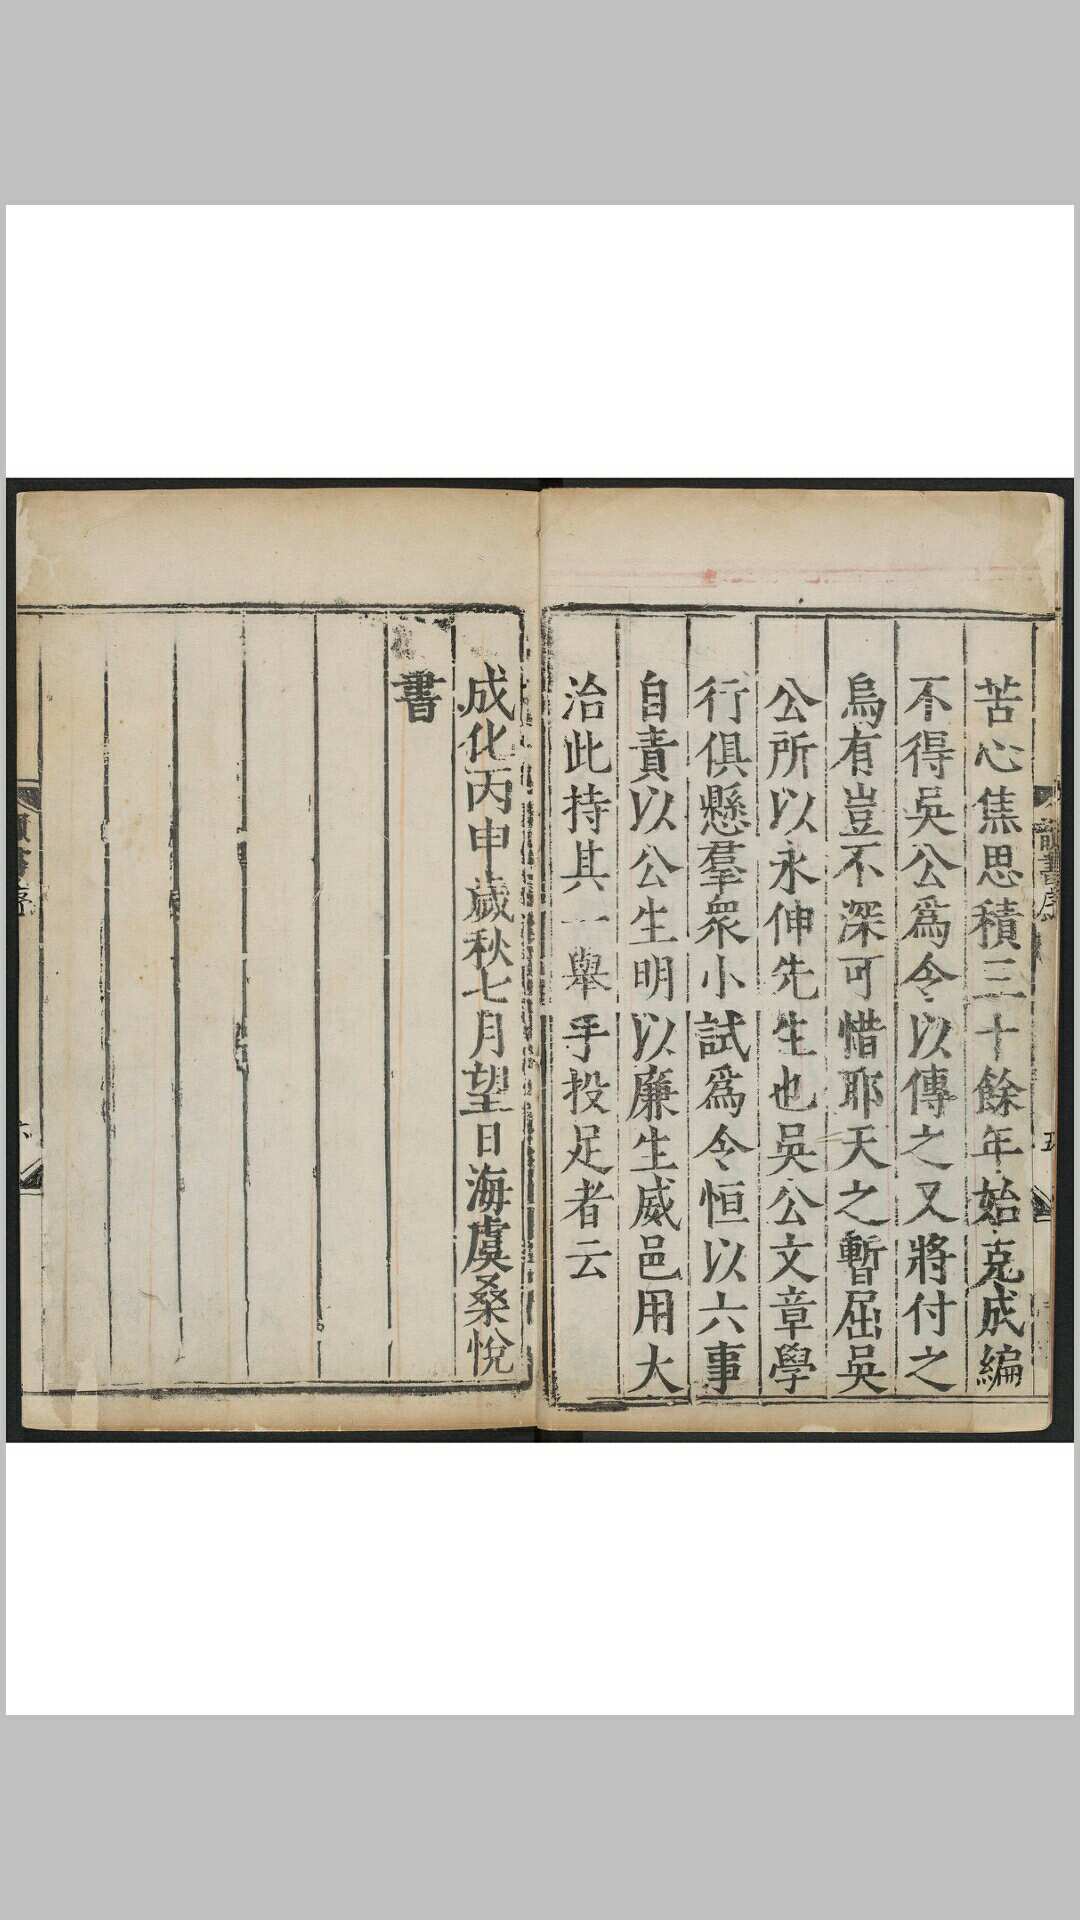 苦心焦思積三十餘年始克成編
不得吳公爲令以傳之又將付之
烏有豈不深可惜耶天之暫屈吳
公所以永伸先生也吳公文章學
行俱懸羣衆小試爲令恒以六事
自責以公生明以廉生威邑用大
治此持其一舉手投足者云
成化丙申歲秋七月望日海虞桑悅
書